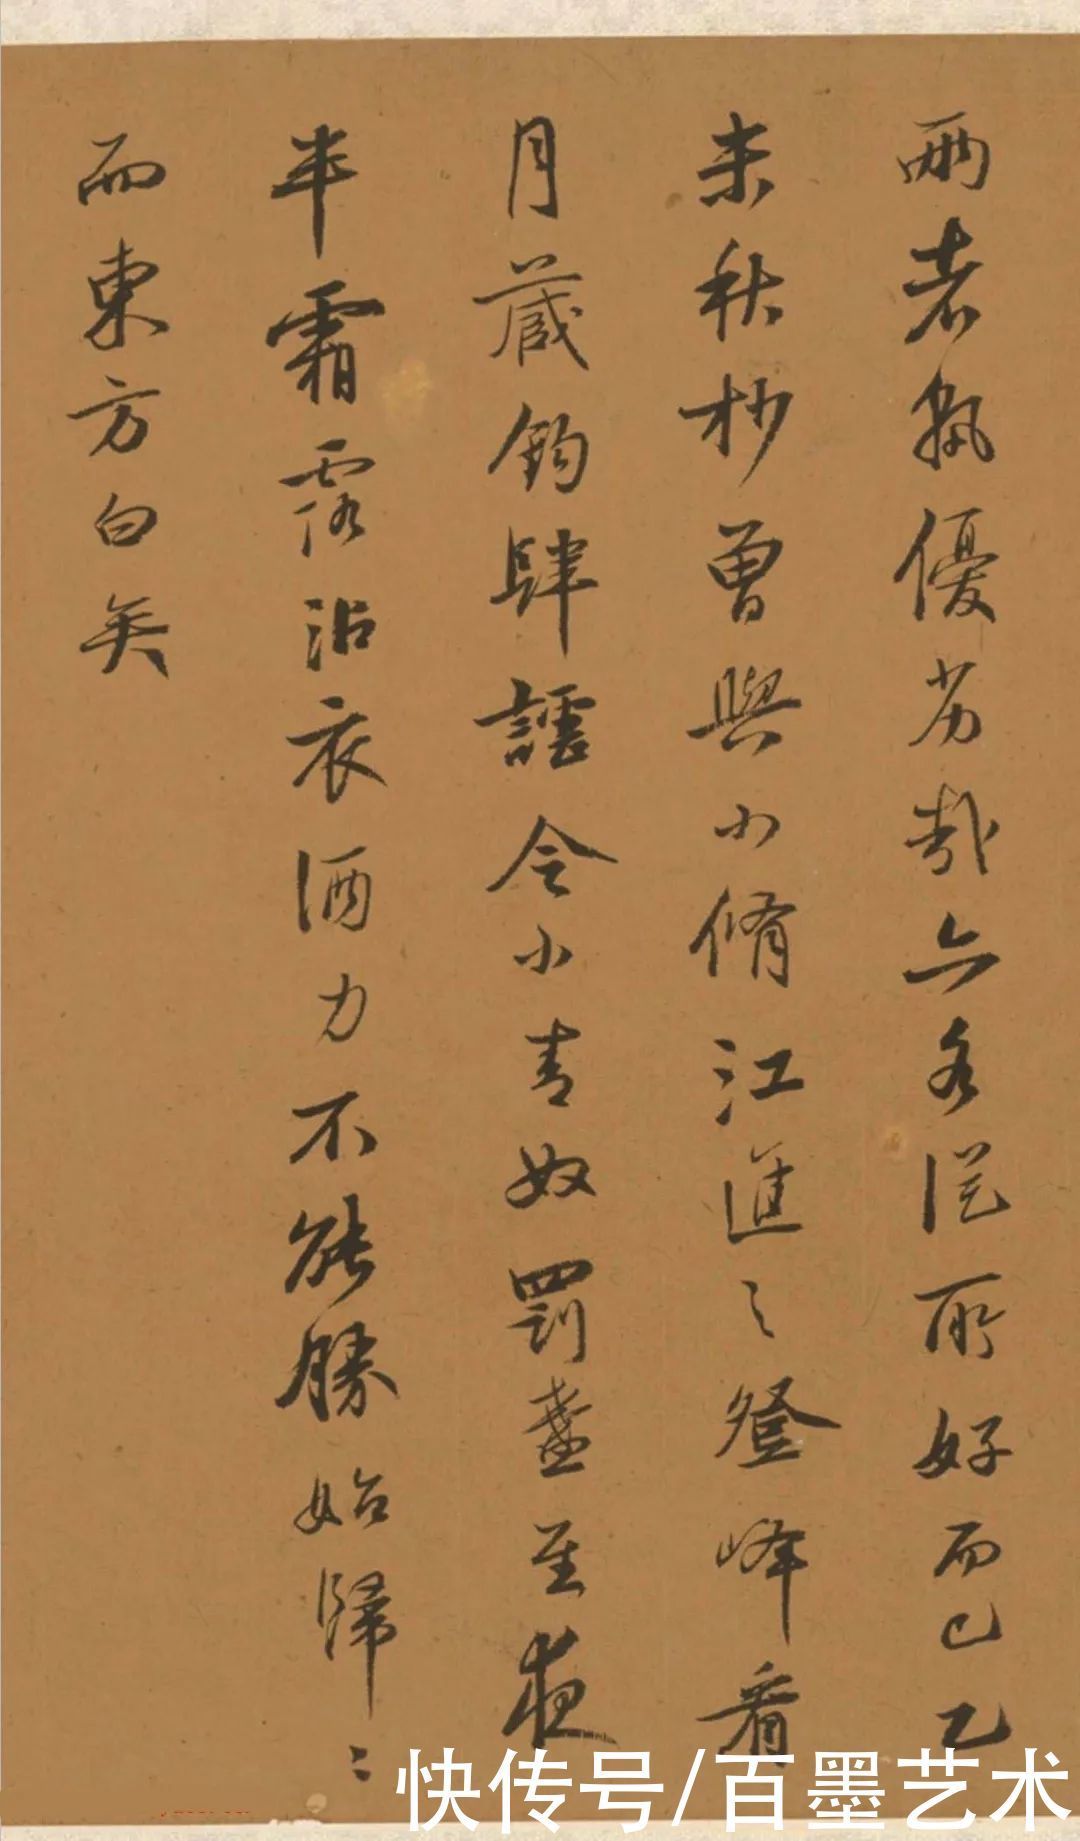 兩者孰優劣哉亦各從所好而已乙
未秋杪曾與小脩江進之登峰看
月藏鉤肆謔令小青奴罰盞至夜
半霜露沾衣酒力不能勝始歸歸
而東方白矣
快传号/百墨艺术